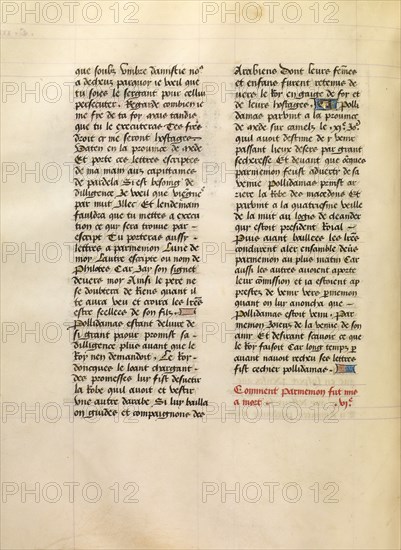 que soubz umbre damistie no9
a deceuz parquoy je vueil que
tu soies le sergant pour cellui
persecuter. Regarde combien ie
me fie de ta foy mais tandiz
que tu le executeras Tes fre
res me seront hostages.
Vaten en la province de mede
Et porte ces lettres escriptes
de ma main aux capitaines
de pardela Si est besoing de
dilligence Je vueil que viegnes
par nuit Illec Et lendemain
fauldra que tu mettes a execu
tion ce que sera trouve par
escript Tu porteras aussy
lettres a parmenon Lune de
moy Lautre escripte ou nom de
Philotes Car Jay son signet
devers moy Ainsi le pere ne
se doubtera de Riens quant il
te aura veu et avera les lres
estre seellees de son filz.
Pollidamas estant delivre de
si grant paour promist sa
dilligence plus avant que le
Roy nen demandoit. Le Roy
doncques le loant chargant
des promesses luy fist desvestir
la Robe quil avoit et vestir
une autre darabe Si luy bailla
en guides et compaignons des
Arabiens Dont leurs femes
et enfans furent retenus de
vers le Roy en gaige de foy et
de leurs hostages. Polli
damas parvint a la province
de mede sur camelz le xie Jor
quil avoit destine de y venir
passant lieux desers par grant
secheresse Et devant que oncques
parmenon feust adverti de sa
venue Pollidamas prinst ar
riere la Robe des macedons Et
parvint a la quatriesme veille
de la nuit au logis de cleander
qui estoit president Roial
Puis avant baillees les lres
conclurent aler ensemble devers
parmenon au plus matin Car
aussi les autres avoient aporte
leur commission et la estoient ap
prestez de venir vers parmenon
quant on luy anonca que
Pollidamas estoit venu. Par
menon Joieux de la venue de son
amy Et desirant scavoir ce que
le Roy faisoit Car long temps y
avoit navoit receu ses lettres
fist cercher pollidamas.
Comment parmenon fut mis
a mort. .vi.
PHOTO 12